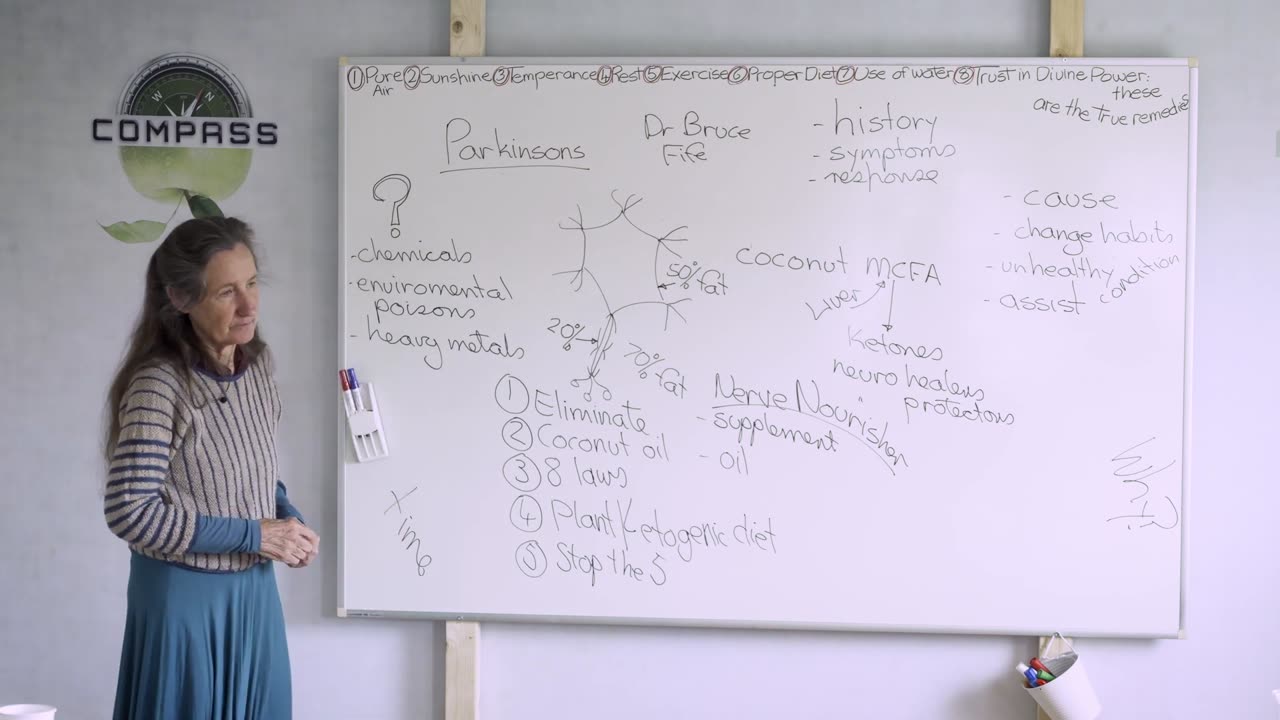 W N
COMPASS
① Pure ② Sunshine ③ Temperance ④ Rest ⑤ Exercise ⑥ Proper Diet ⑦ Use of water ⑧ Trust in Divine Power:
Air
these
are the True remedies
Parkinsons
Dr Bruce
Fife
- history
- symptoms
- response
?
- chemicals
- enviromental
poisons
- heavy metals
50% fat
20%
%
70% fat
coconut MCFA
Liver
Ketones
neuro healers
" protectors
- cause
- change habits
- unhealthy condition
- assist
① Eliminate
② Coconut oil
③ 8 laws
④ Plant/Ketogenic diet
⑤ Stop the 5
Nerve Nourisher
- supplement
- oil
Time